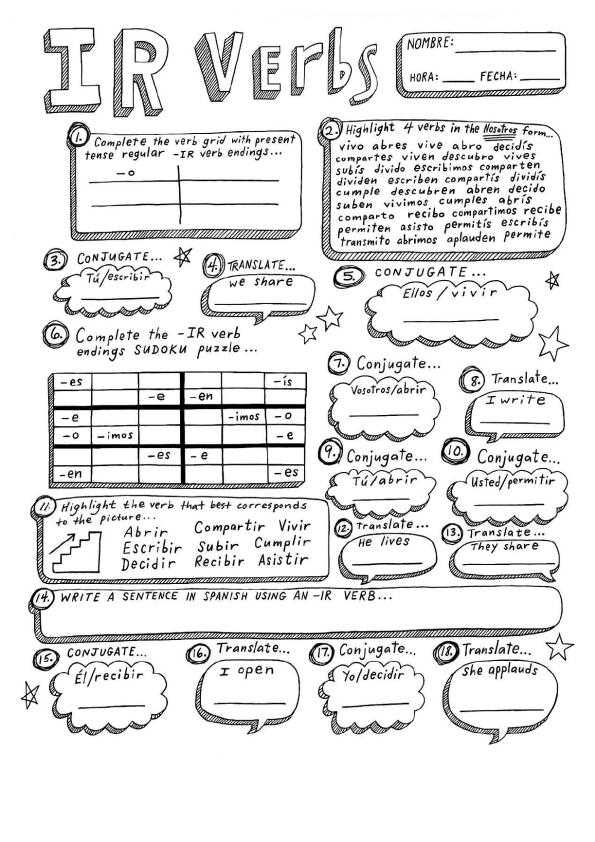 IR Verbs
NOMBRE:
HORA: FECHA:
1. Complete the verb grid with present
tense regular -IR verb endings...
-o
2. Highlight 4 verbs in the Nosotros form...
vivo abres vive abro decidís
compartes viven descubro vives
subís divido escribimos comparten
dividen escriben compartís dividís
cumple descubren abren decido
suben vivimos cumples abrís
comparto recibo compartimos recibe
permiten asisto permitís escribís
transmito abrimos aplauden permite
3. CONJUGATE...
Tú/escribir
4. TRANSLATE...
we share
5. CONJUGATE...
Ellos / vivir
6. Complete the -IR verb
endings SUDOKU puzzle...
-es -ís
-e -en
-e -imos -o
-o -imos -e
-es -e
-en -es
7. Conjugate...
Vosotros/abrir
8. Translate...
I write
9. Conjugate...
Tú/abrir
10. Conjugate...
Usted/permitir
11. Highlight the verb that best corresponds
to the picture...
Abrir Compartir Vivir
Escribir Subir Cumplir
Decidir Recibir Asistir
12. Translate...
He lives
13. Translate...
They share
14. WRITE A SENTENCE IN SPANISH USING AN -IR VERB...
15. CONJUGATE...
Él/recibir
16. Translate...
I open
17. Conjugate...
Yo/decidir
18. Translate...
She applauds